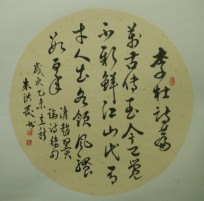 李杜詩篇
萬古傳至今已覺
不新鮮江山代有
才人出各領風騷
數百年 清趙翼
論詩絕句
歲次乙未立秋